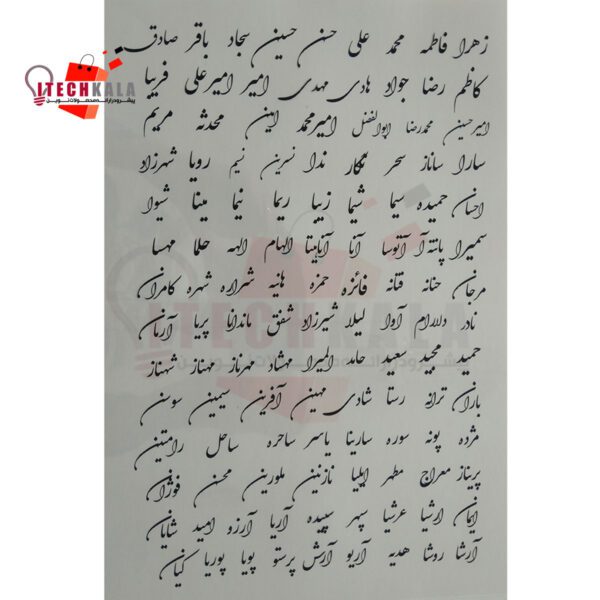 زهرا فاطمه محمد علی حسن حسین سجاد باقر صادق
ITECHKALA
کاظم رضا جواد هادی مهدی امیر امیرعلی فریبا
امیرحسین محمدرضا ابوالفضل امیرمحمد امین محدثه مریم
سارا ساناز سحر نگار ندا نسرین نسیم رویا شهرزاد
احسان حمیده سیما شیما زیبا ریما نیما مینا شیوا
سمیرا پانته آ آتوسا آنا آناهیتا الهام الهه حلما مهسا
مرجان حنانه فتانه فائزه حمزه هانیه شراره شهره کامران
نادر دلارام آوا لیلا شیرزاد شفق ماندانا پریا آرمان
حمید مجید سعید حامد المیرا مهشاد مهرناز مهناز شهناز
باران ترانه رستا شادی مهین آفرین سیمین سوسن
مژده پونه سوره سارینا یاسر ساحره ساحل رامتین
پریناز معراج مطهر ایلیا نازنین ملورین محسن فوژان
ایمان ارشیا عرشیا سپهر سپیده آریا آرزو امید شایان
آرشا روشا هدیه آریو آرش پرستو پویا پوریا کیان